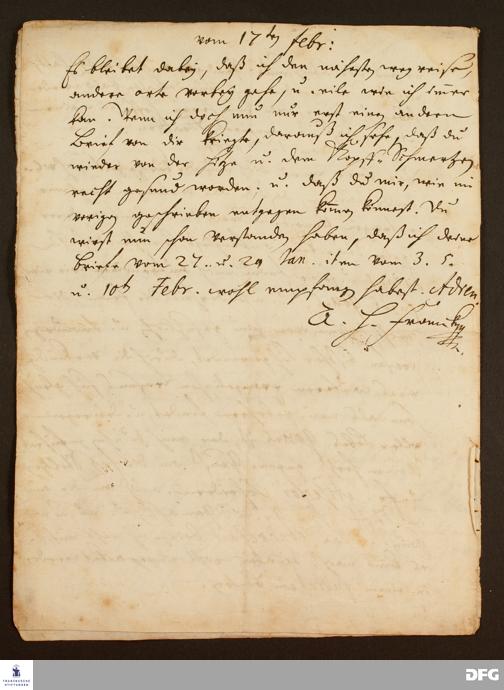 vom 17ten febr:
Es bleibet dabey, daß ich den nähesten weg reise,
andere orte vorbey gehe, u. eile wie ich immer
kan. Wenn ich doch nun nur erst einen andern
Brief von dir kriegte, darauß ich sehe, daß du
wieder von der Hitze u. dem Kopff-Schmertzen
recht gesund worden. u. daß du mir, wie im
vorigen geschrieben entgegen komen könnest. Du
wirst nun schon verstanden haben, daß ich deine
Briefe vom 27. u. 29 Jan. item vom 3. 5.
u. 10t Febr. wohl empfangen habe. Adieu.
A. H. Francke
FRANCKESCHE STIFTUNGEN
DFG